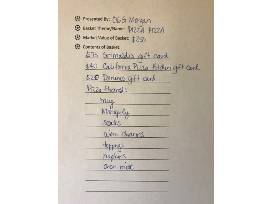 Presented By: OEG Morgan
Basket Theme/Name: PIZZA PIZZA
Market Value of Basket: $250
Contents of Basket
$75 Grimaldis gift card
$40 California Pizza Kitchen gift card
$20 Dominos gift card
Pizza themed:
mug
Monopoly
socks
wine charms
toppings
napkins
oven mitt